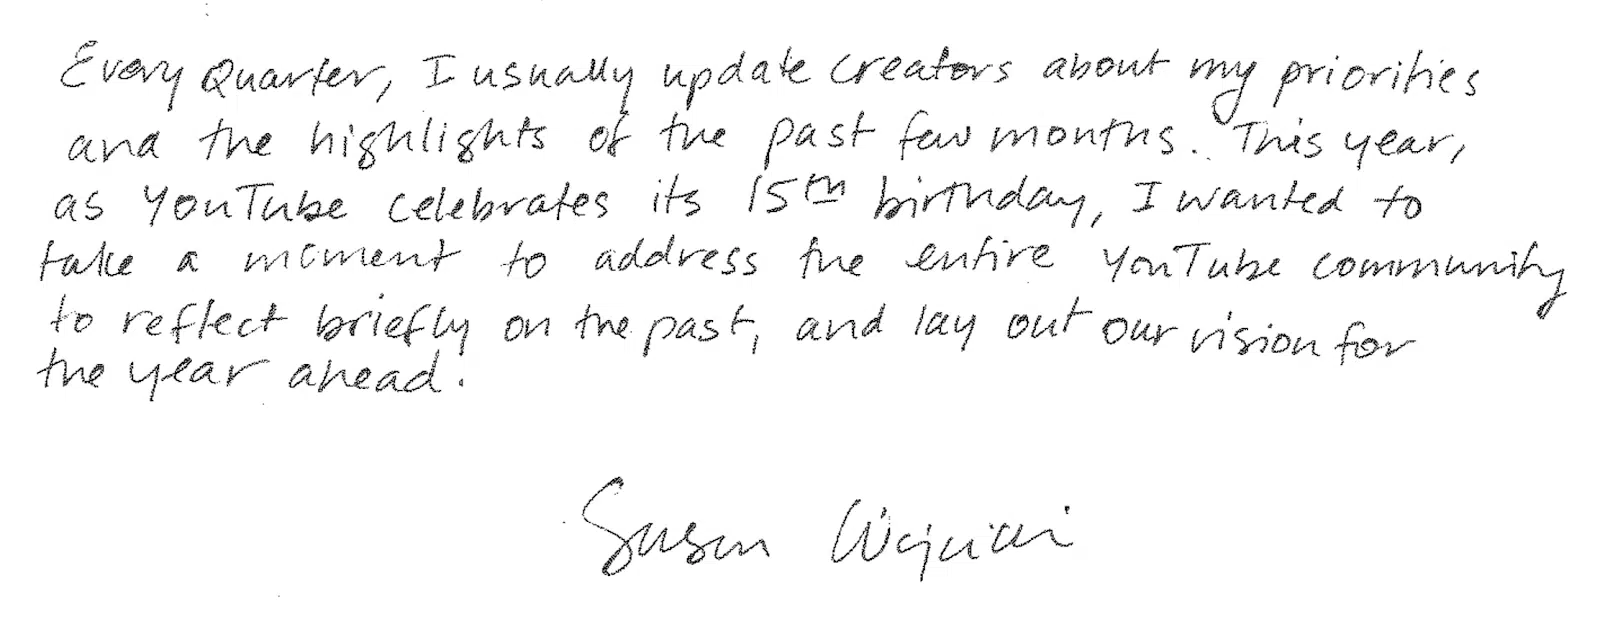 Every Quarter, I usually update creators about my priorities
and the highlights of the past few months. This year,
as YouTube celebrates its 15th birthday, I wanted to
take a moment to address the entire YouTube community
to reflect briefly on the past, and lay out our vision for
the year ahead.
Susan Wojcicki